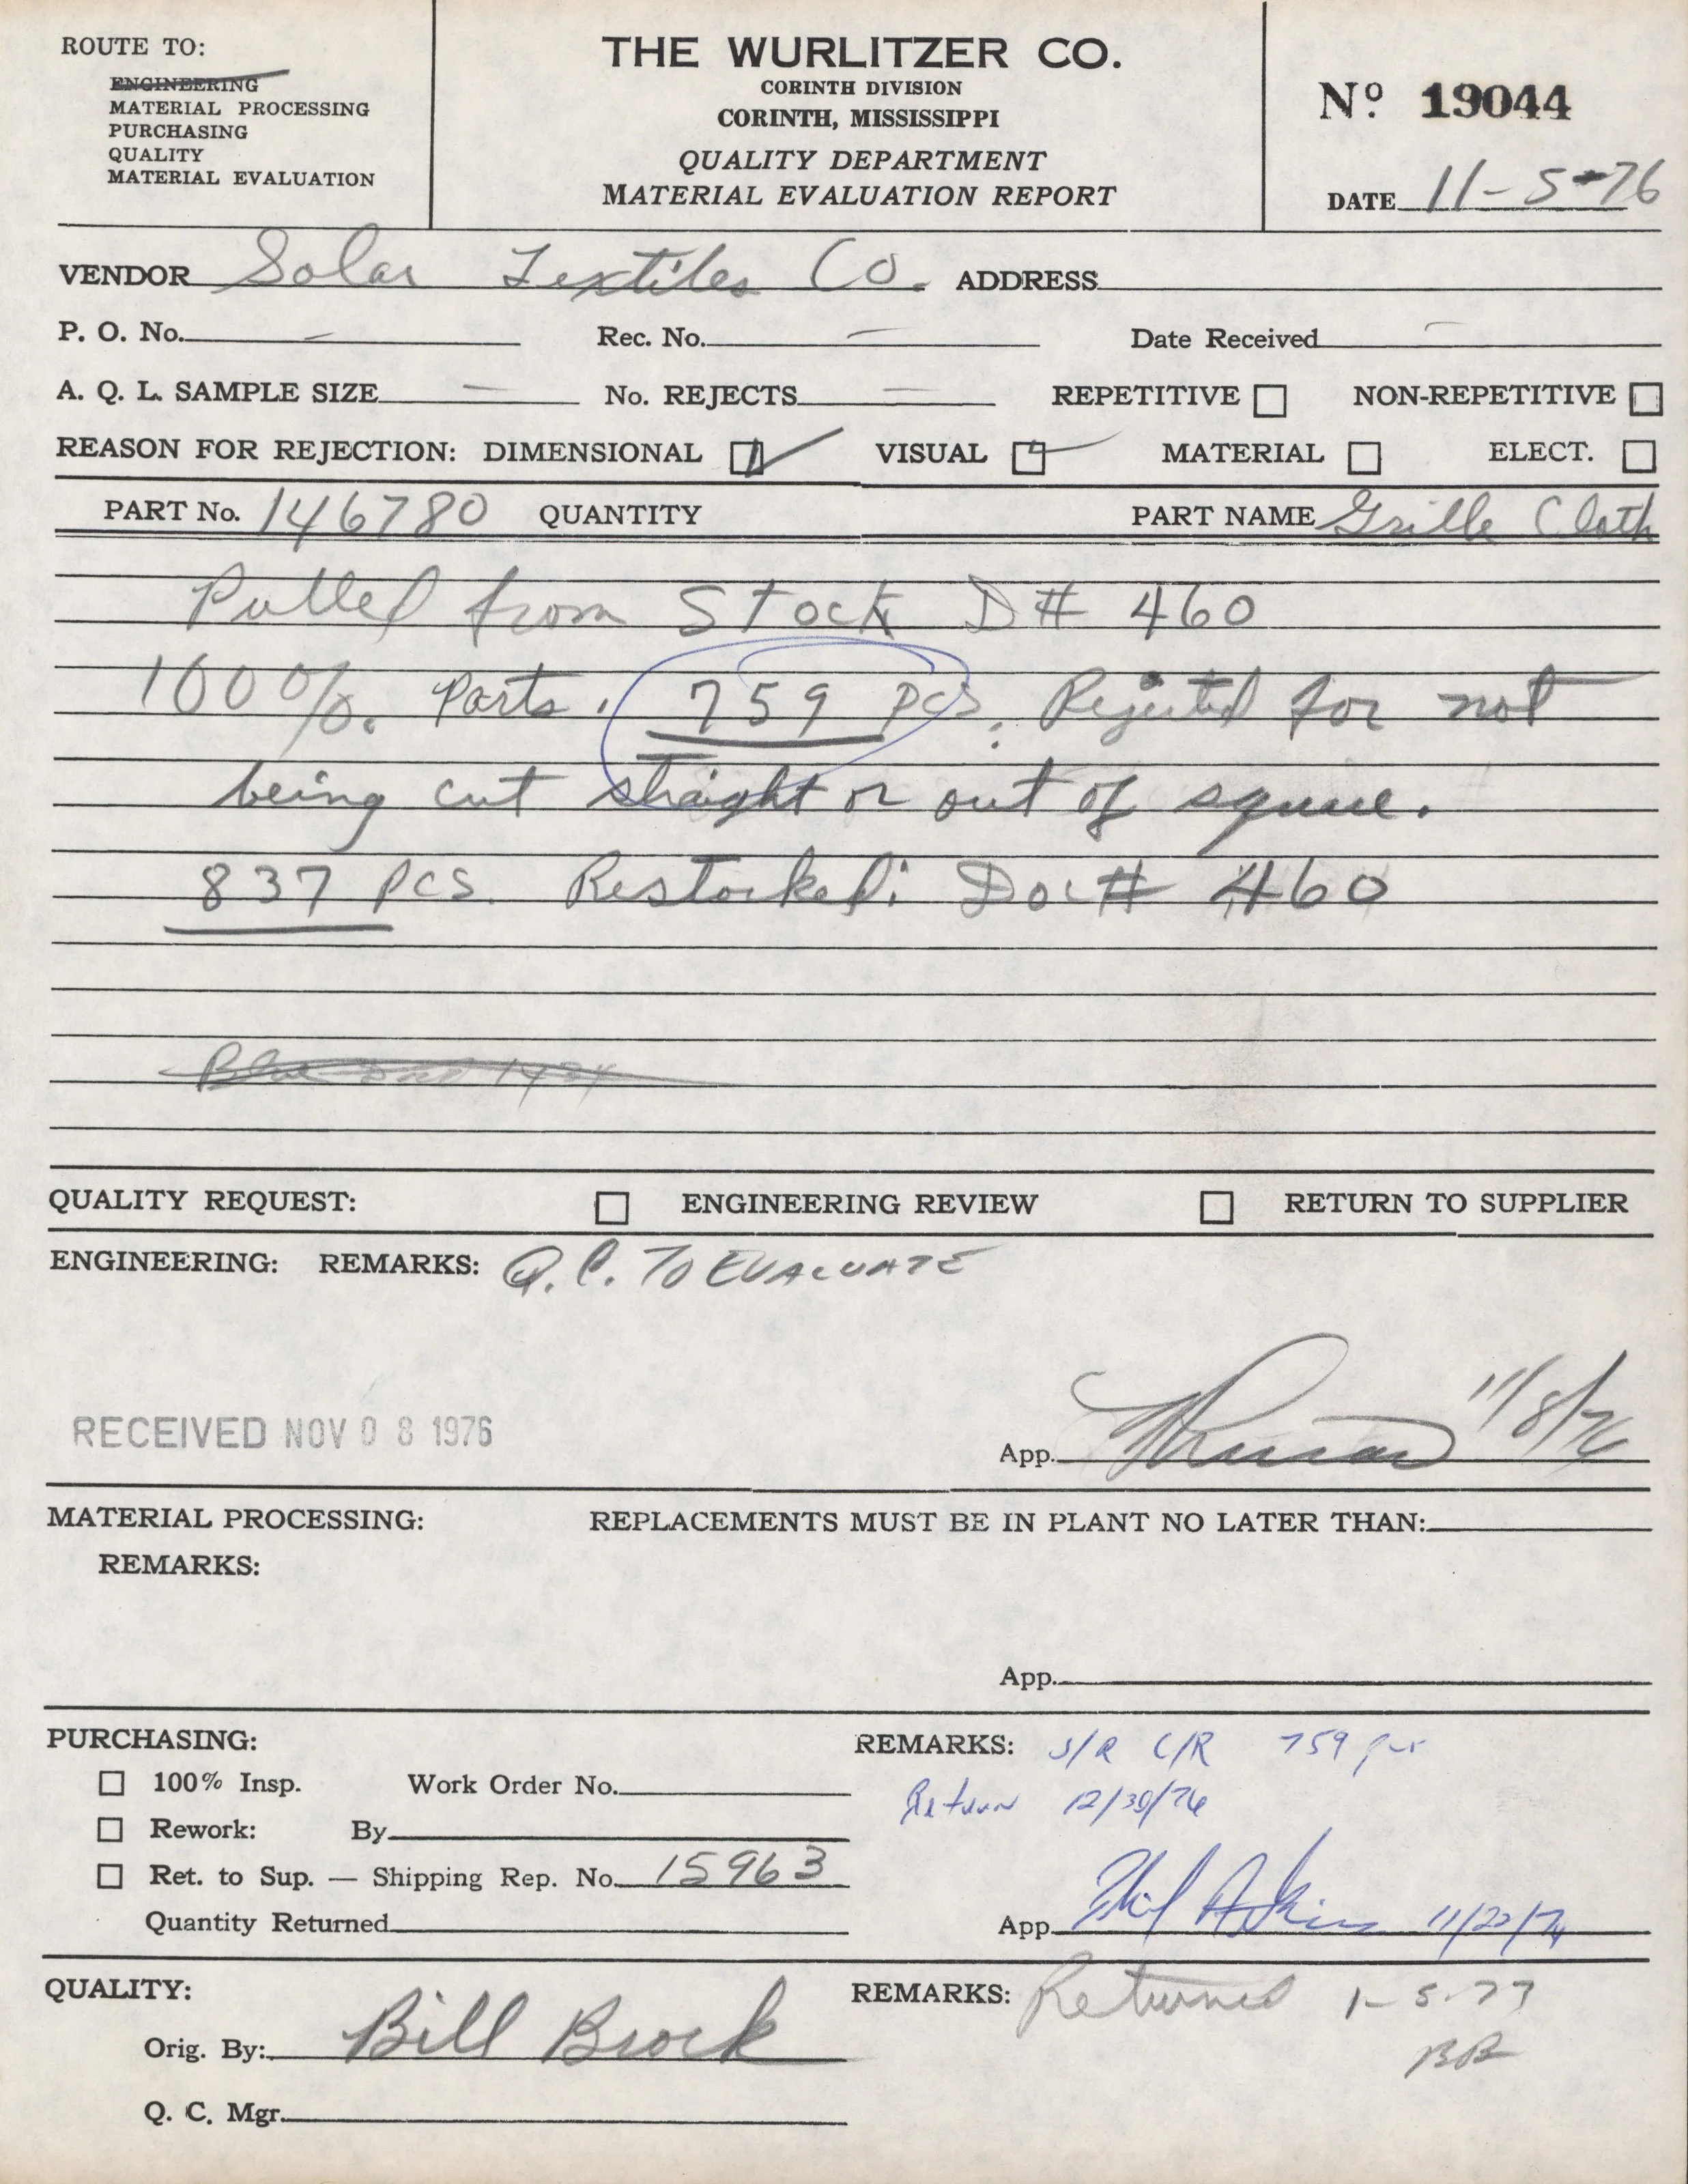 ROUTE TO:
ENGINEERING
MATERIAL PROCESSING
PURCHASING
QUALITY
MATERIAL EVALUATION
THE WURLITZER CO.
CORINTH DIVISION
CORINTH, MISSISSIPPI
QUALITY DEPARTMENT
MATERIAL EVALUATION REPORT
Nº 19044
DATE 11-5-76
VENDOR Solar Textiles Co. ADDRESS
P. O. No. — Rec. No. — Date Received —
A. Q. L. SAMPLE SIZE — No. REJECTS — REPETITIVE NON-REPETITIVE
REASON FOR REJECTION: DIMENSIONAL VISUAL MATERIAL ELECT.
PART No. 146780 QUANTITY PART NAME Grille Cloth
Pulled from Stock D# 460
100% Parts. 759 pcs. Rejected for not
being cut straight or out of square.
837 pcs. Restocked: Doc# 460
QUALITY REQUEST: ENGINEERING REVIEW RETURN TO SUPPLIER
ENGINEERING: REMARKS: Q.C. TO EVALUATE
RECEIVED NOV 08 1976
App. 11/8/76
MATERIAL PROCESSING: REPLACEMENTS MUST BE IN PLANT NO LATER THAN:
REMARKS:
App.
PURCHASING: REMARKS: S/R C/R 759 pcs
100% Insp. Work Order No. Return 12/30/76
Rework: By
Ret. to Sup. — Shipping Rep. No. 15963
Quantity Returned App. Phil Adkins 11/22/76
QUALITY: REMARKS: Returned 1-5-77
Orig. By: Bill Brock BB
Q. C. Mgr.